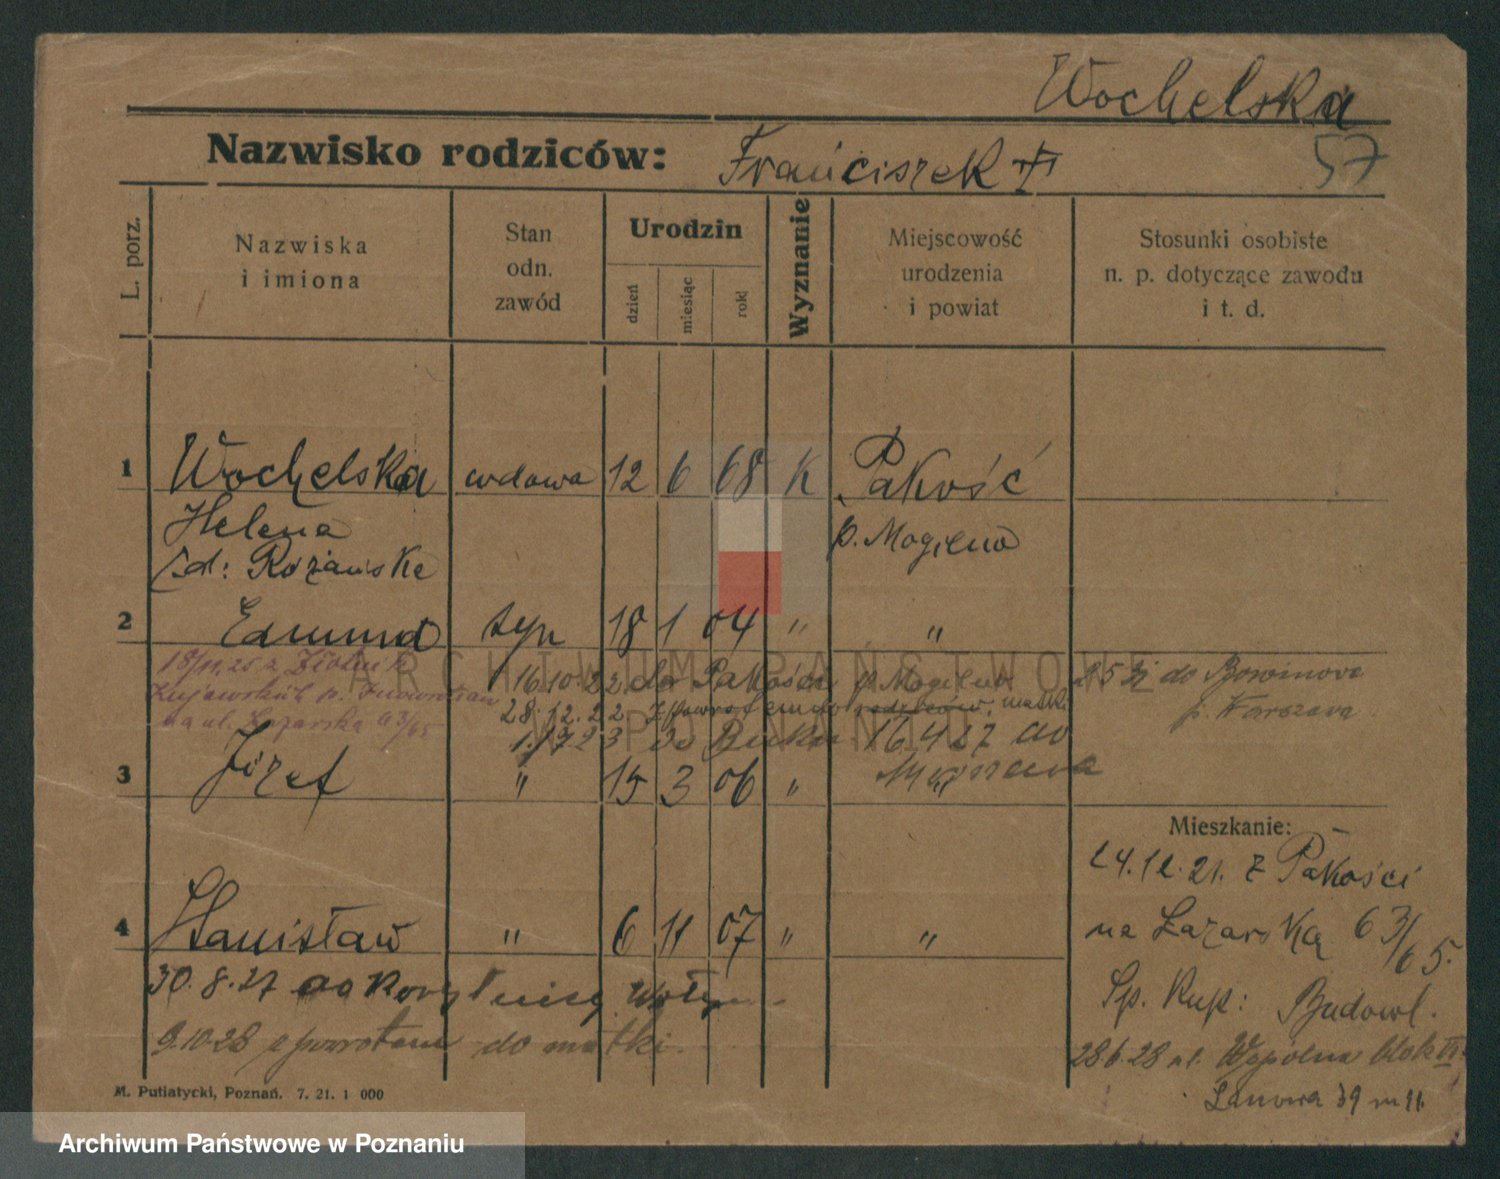 Wochelska
Nazwisko rodziców: Franciszek
57
L. porz.
Nazwiska i imiona
Stan odn. zawód
Urodzin
dzień
miesiąc
rok
Wyznanie
Miejscowość urodzenia i powiat
Stosunki osobiste n. p. dotyczące zawodu i t. d.
1 Wochelska wdowa 12 6 68 K Pakość
Helena p. Mogilno
zd: Rożańska
2 Edmund syn 18 1 04 " "
18/11.25 z Złotnik
Kujawskich p. Inowrocław
na ul. Łazarska 63/65
16.10.22 do Pakości p. Mogilno
28.12.22 z powrotem do rodziców, matki
1. 7 23 do Buku 16.4.27 do
Warszawa
do Borzinowa
p. Warszawa
3 Józef " 15 3 06 " "
Mieszkanie:
24.12.21. z Pakości
na Łazarską 63/65.
Sp. Kup: Budowl.
4 Stanisław " 6 11 07 " "
30.8.27 do Wołyn
9.10.28 z powrotem do matki.
28.6.28 ul. Wspólna blok
Łanowa 39 m 11.
M. Putiatycki, Poznań. 7. 21. 1 000
ARCHIWUM PAŃSTWOWE
W POZNANIU
Archiwum Państwowe w Poznaniu